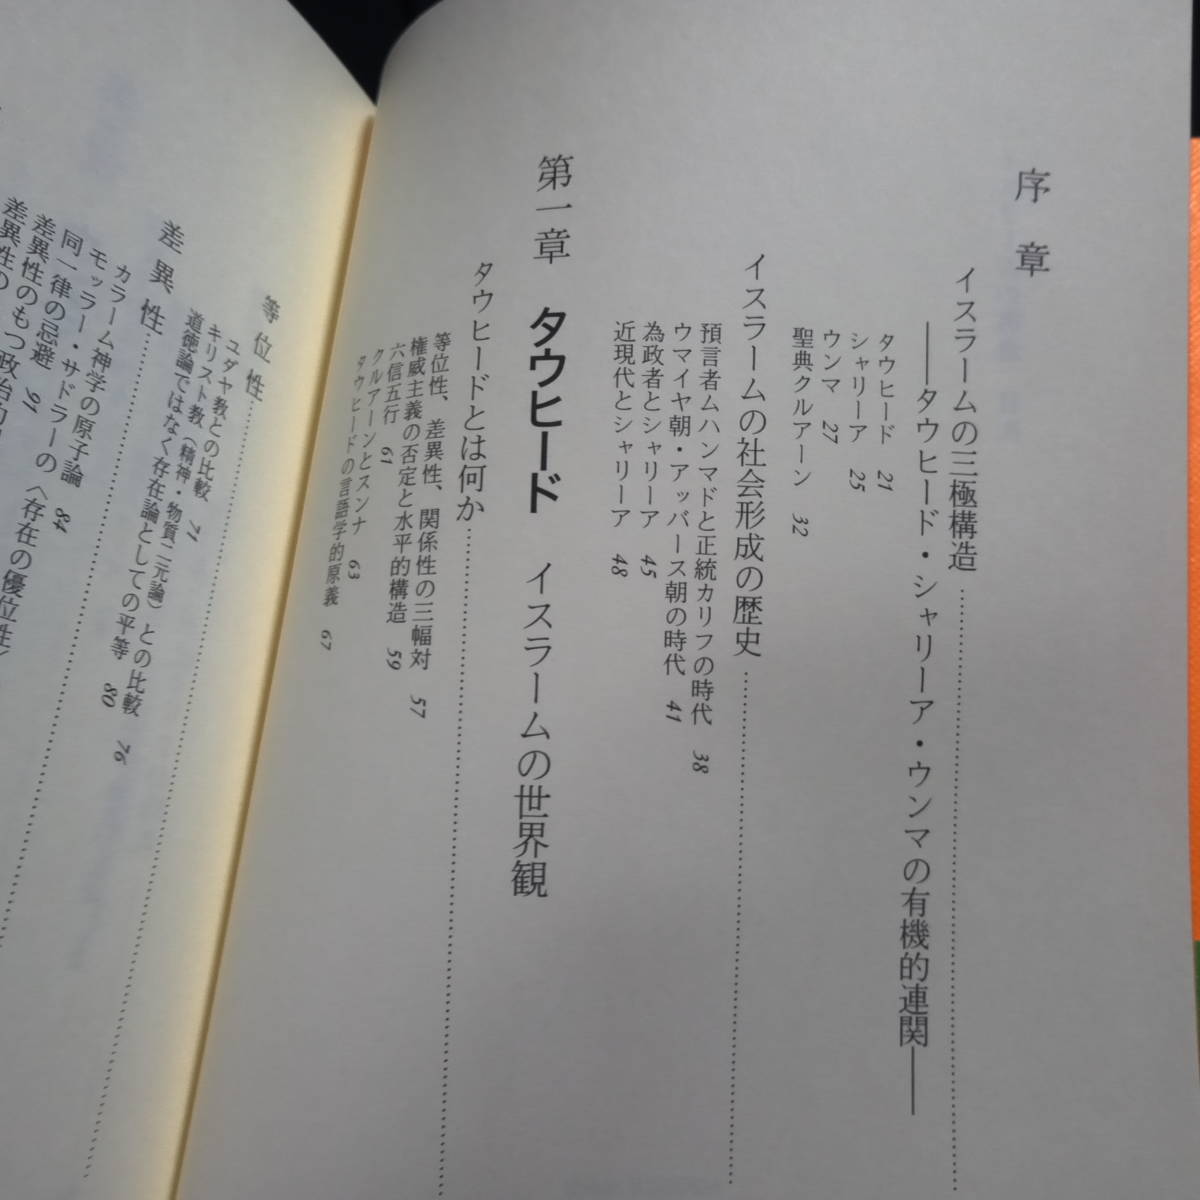 序章
イスラームの三極構造
――タウヒード・シャリーア・ウンマの有機的連関――
タウヒード 21
シャリーア 25
ウンマ 27
聖典クルアーン 32
イスラームの社会形成の歴史
預言者ムハンマドと正統カリフの時代 38
ウマイヤ朝・アッバース朝の時代 41
為政者とシャリーア 45
近現代とシャリーア 48
第一章 タウヒード イスラームの世界観
タウヒードとは何か
等位性、差異性、関係性の三幅対 57
権威主義の否定と水平的構造 59
六信五行 61
クルアーンとスンナ 63
タウヒードの言語学的原義 67
等位性
ユダヤ教との比較 71
キリスト教（精神・物質二元論）との比較 76
道徳論ではなく存在論としての平等 80
差異性
カラーム神学の原子論 84
モッラー・サドラーの〈存在の優位性〉
同一律の忌避 91
差異性のもつ政治的
差異性の